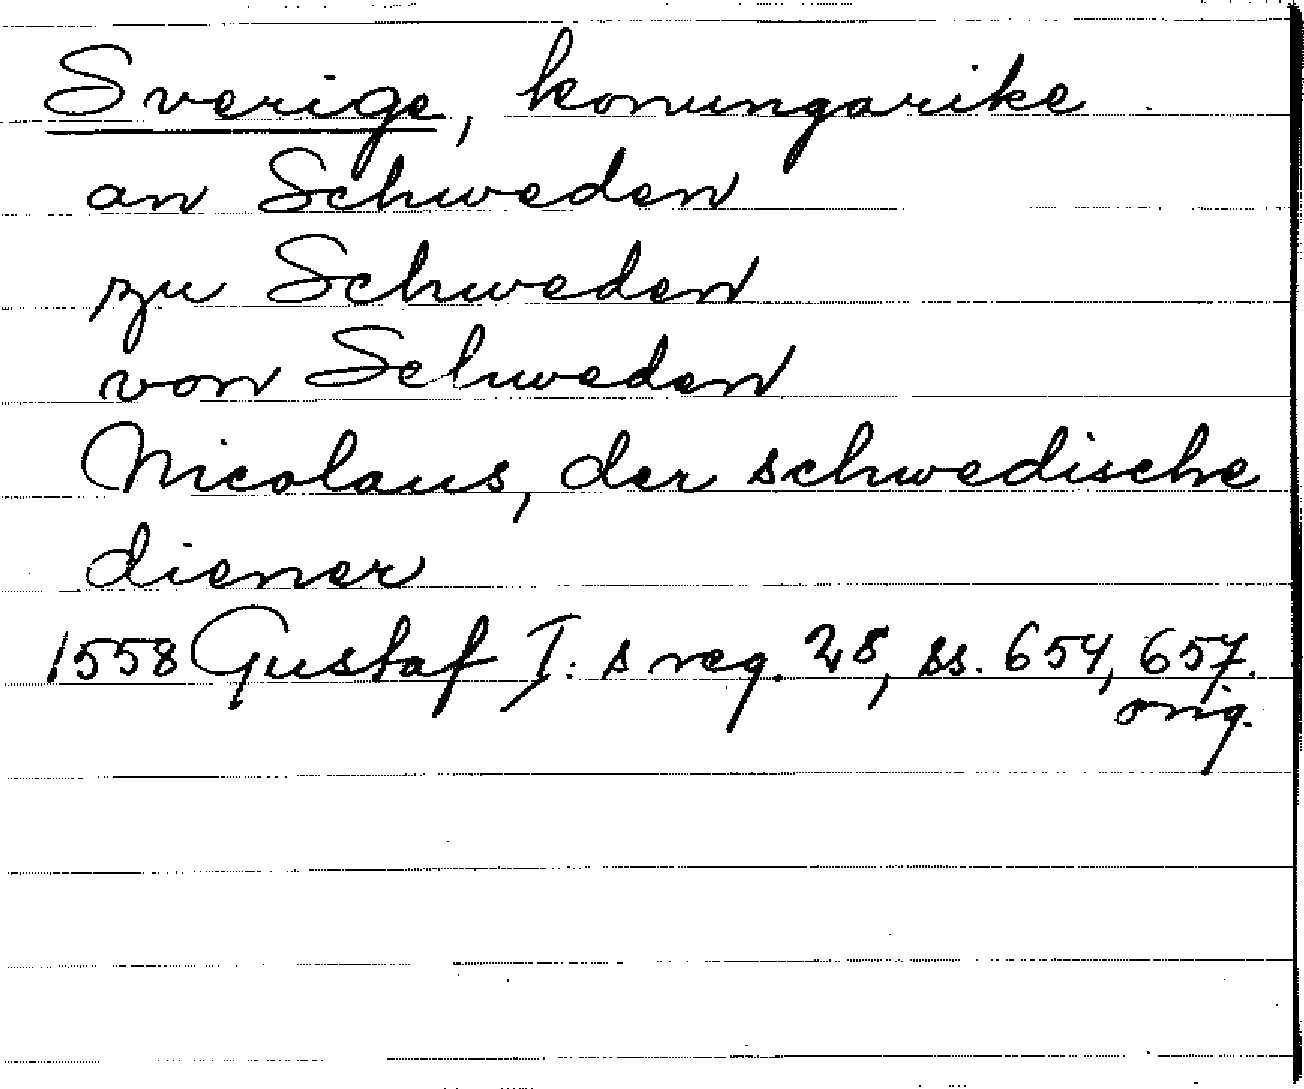 Sverige, konungarike
an Schweden
zu Schweden
von Schweden
Nicolaus, der schwedische
diener
1558 Gustaf I:s reg. 28, ss. 654, 657.
orig.